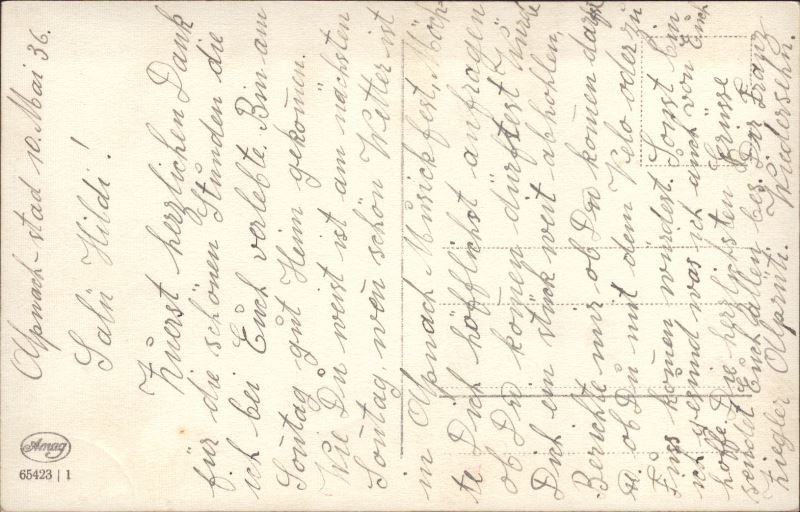 Alpnach-stad 10. Mai 36.
Salü Hildi!
Zuerst herzlichen Dank
für die schönen Stunden die
ich bei Euch verlebte. Bin am
Sontag gut Heim gekomen.
Wie Du weist ist am nächsten
Sontag, wen schön Wetter ist
in Alpnach Musickfest. Möch-
te Dich höfflichst anfragen
ob Du komen dürftest. Würde
Dich ein stück weit abhohlen,
Berichte mir ob Du komen darfst
u. ob Du mit dem Velo oder zu
Fuss komen würdest. Sonst bin
ich gesund was ich auch von Euch
hoffe. Die herzlichsten Grüsse
sendet Euch allen bes. Dir Franz
Ziegler Alpnach. Wiedersehn.
Amag
65423 | 1